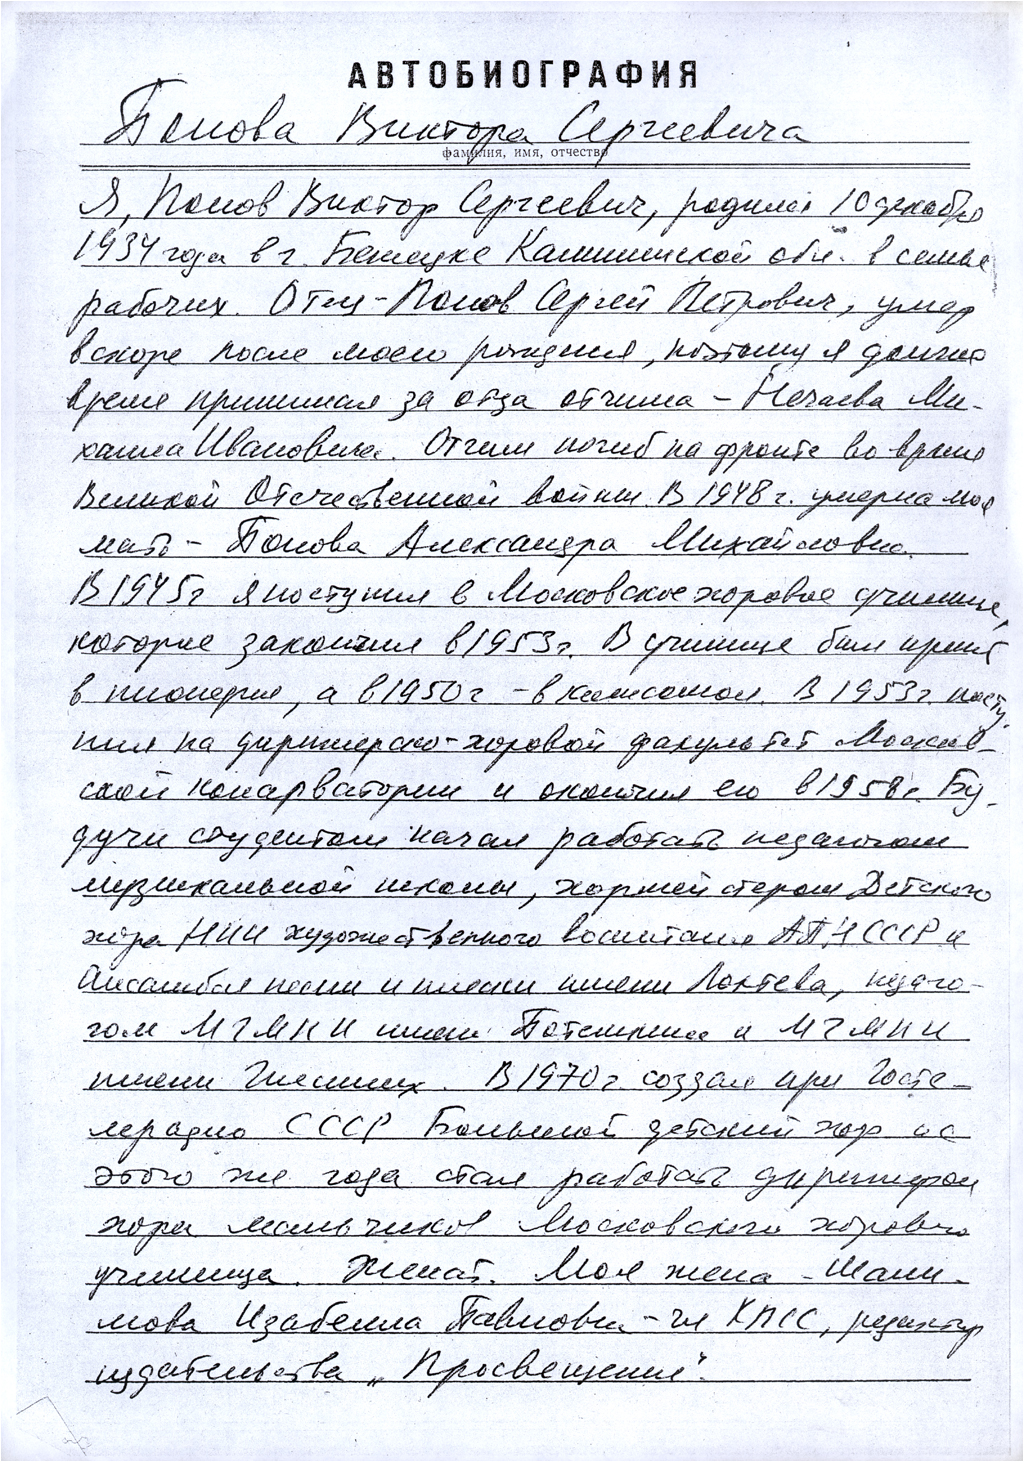 АВТОБИОГРАФИЯ
Попова Виктора Сергеевича
фамилия, имя, отчество
Я, Попов Виктор Сергеевич, родился 10 декабря
1934 года в г. Бежецке Калининской обл. в семье
рабочих. Отец – Попов Сергей Петрович, умер
вскоре после моего рождения, поэтому я долгое
время принимал за отца отчима – Нечаева Ми-
хаила Ивановича. Отчим погиб на фронте во время
Великой Отечественной войны. В 1948 г. умерла моя
мать – Попова Александра Михайловна.
В 1945 г я поступил в Московское хоровое училище,
которое закончил в 1953 г. В училище был принят
в пионеры, а в 1950 г – в комсомол. В 1953 г. посту-
пил на дирижерско-хоровой факультет Москов-
ской консерватории и окончил ею в 1958 г. Бу-
дучи студентом начал работать педагогом
музыкальной школы, хормейстером Детского
хора НИИ художественного воспитания АПН СССР и
Ансамбля песни и пляски имени Локтева, педаго-
гом МГМПИ имени Потемкина и МГМПИ
имени Гнесиных. В 1970 г. создал при Госте-
лерадио СССР Большой детский хор и с
этого же года стал работать дирижером
хора мальчиков Московского хорового
училища. Женат. Моя жена – Шани-
мова Изабелла Павловна – чл КПСС, редактор
издательства „Просвещение".